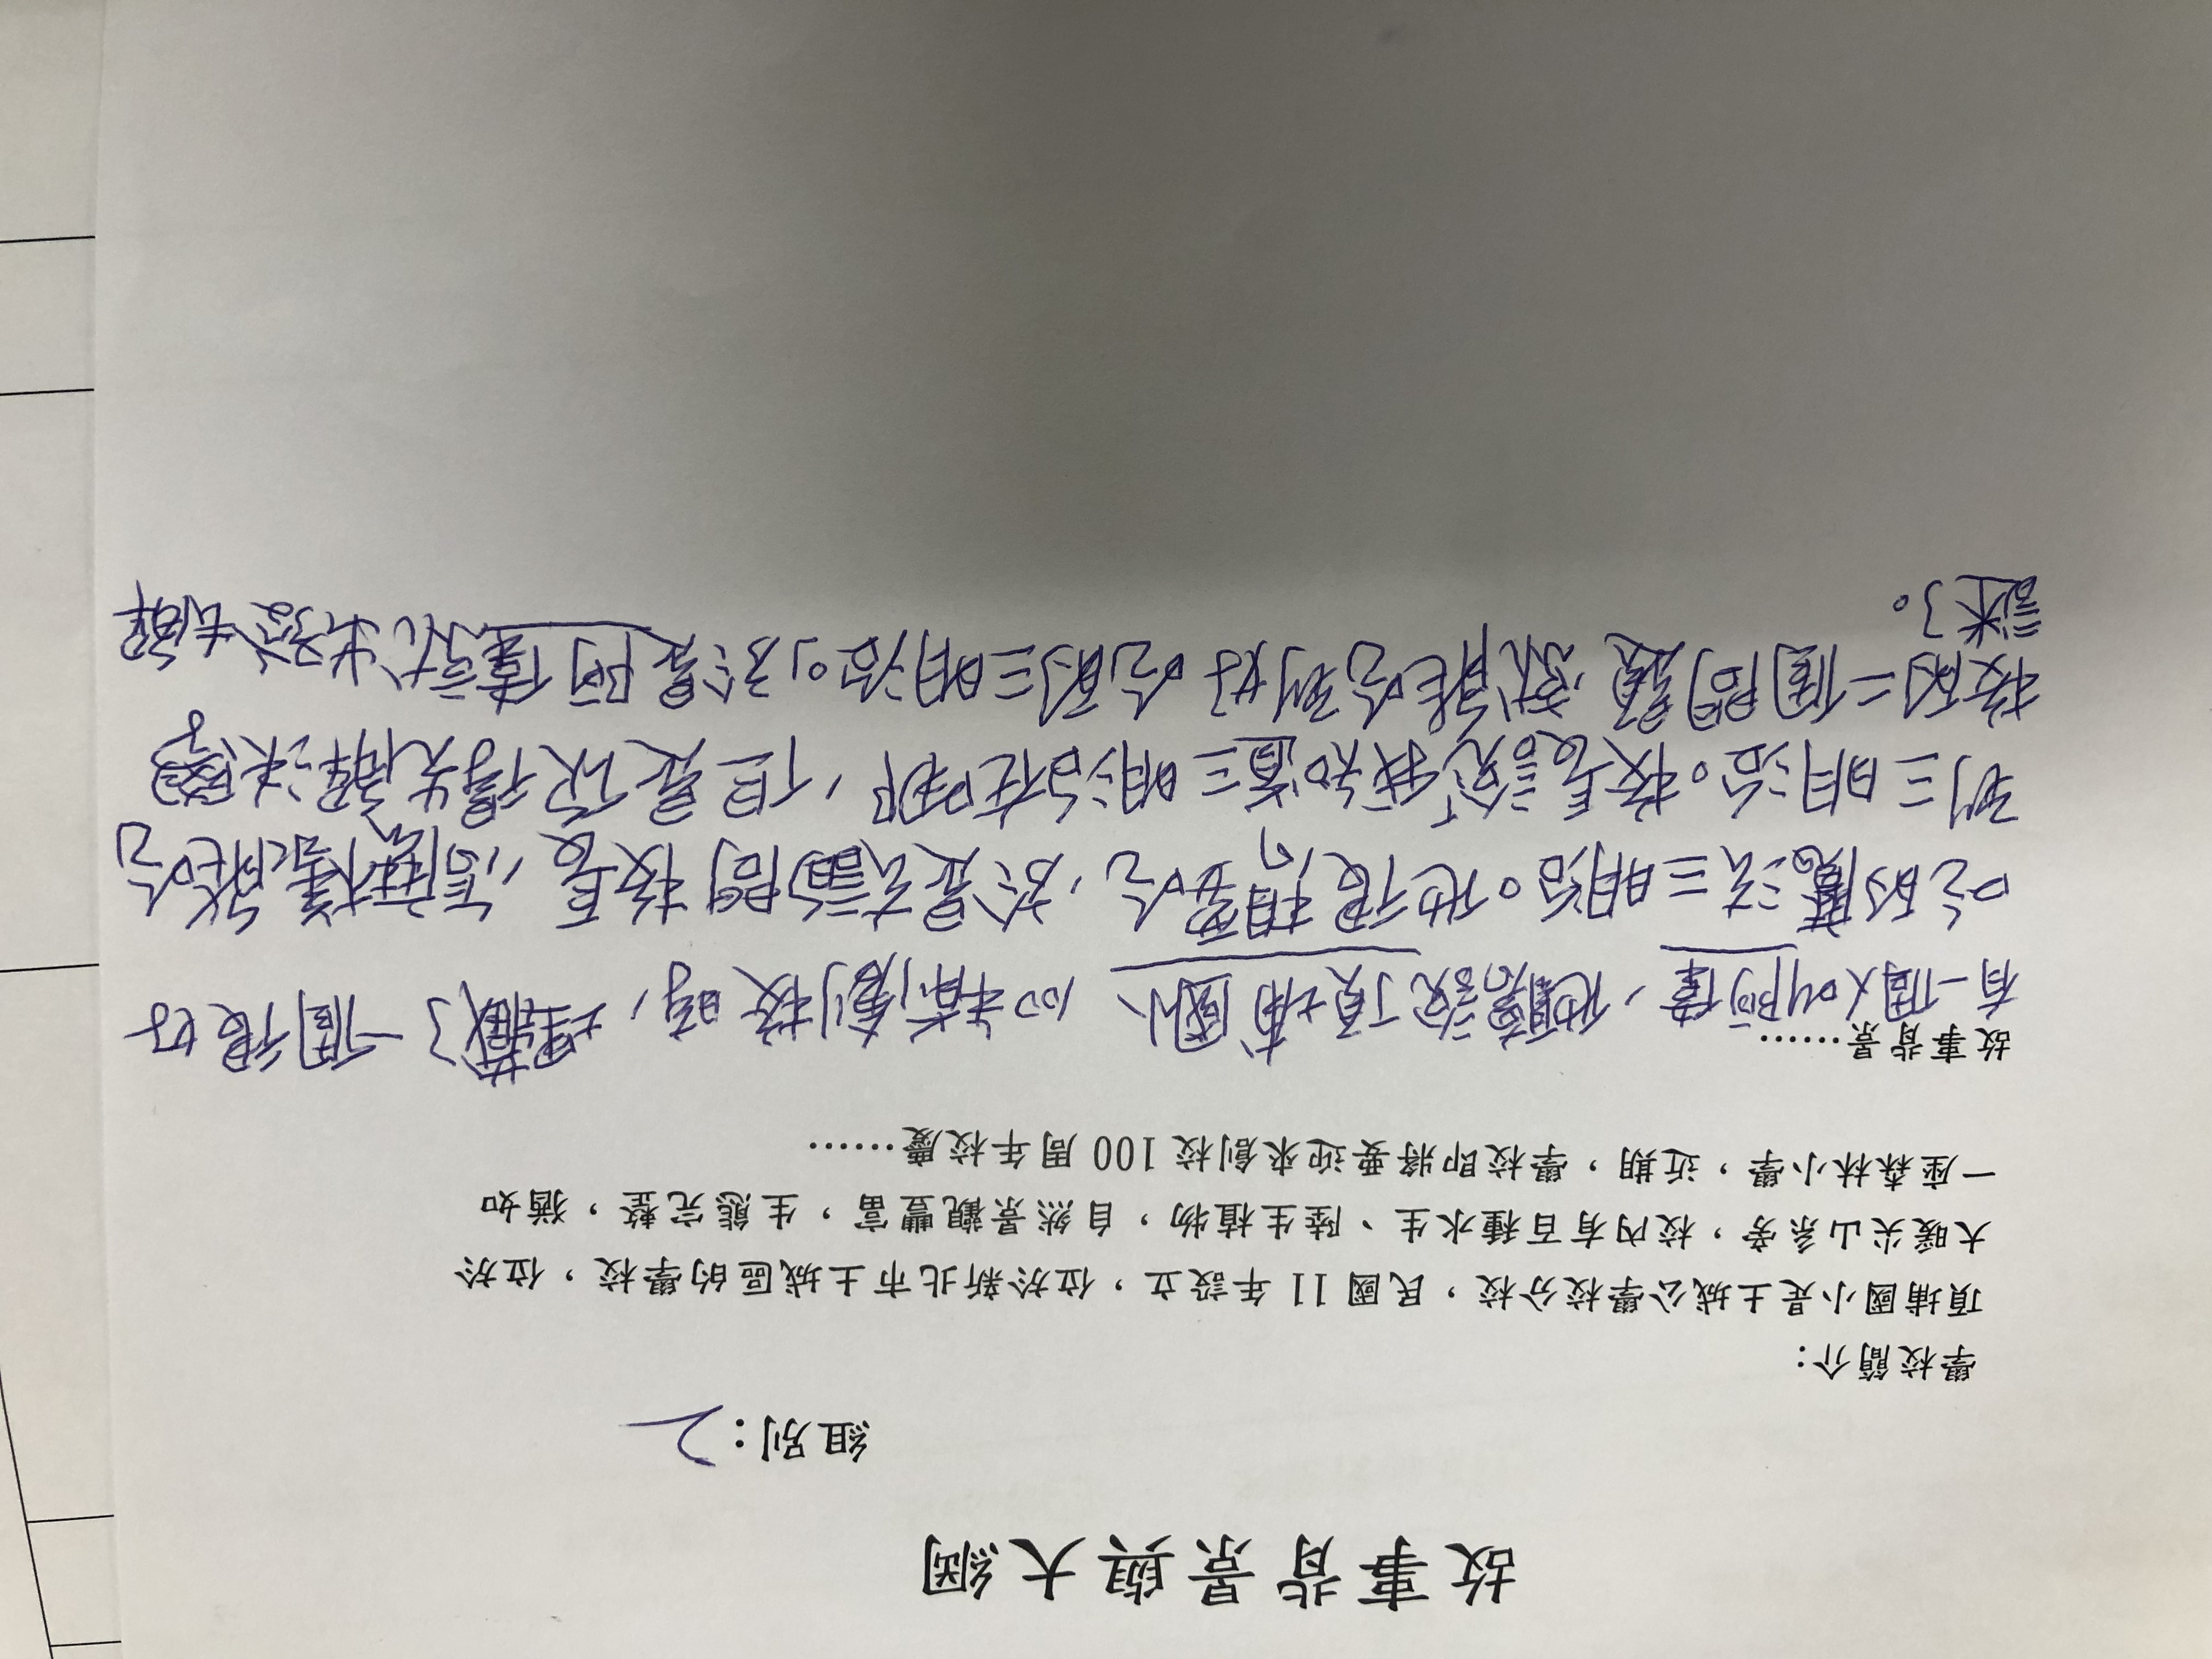 故事背景與大綱
組別:2
學校簡介:
頂埔國小是土城公學校分校，民國 11 年設立，位於新北市土城區的學校，位於
大暖尖山系旁，校內有百種水生、陸生植物，自然景觀豐富，生態完整，猶如
一座森林小學，近期，學校即將要迎來創校 100 周年校慶……
故事背景……
有一個人叫阿偉，他聽說頂埔國小100年前創校時，埋藏了一個很好
吃的魔法三明治。他很想要吃，於是去詢問校長，怎麼樣能吃
到三明治。校長說:「我知道三明治在哪，但是你得先解決學
校的二個問題，就能吃到好吃的三明治。」於是阿偉就出發去解
謎了。